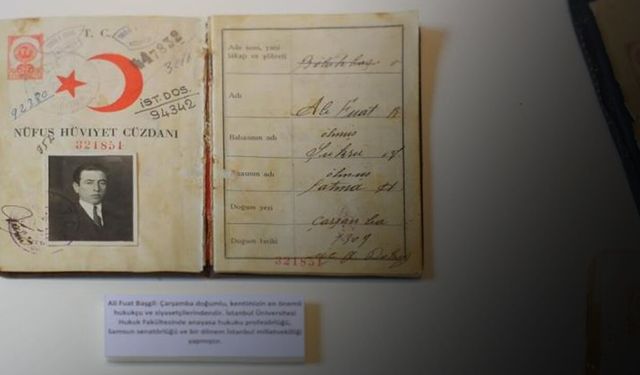 T. C.
47832
92380
İST. DOS.
94342
NÜFUS HÜVİYET CÜZDANI
321851
Adı
Ali Fuat
Babasının adı
ölmüş
Şükrü
Anasının adı
ölmüş
Fatma
Doğum yeri
Çarşamba
Doğum tarihi
1309
321851
Ali Fuat Başgil: Çarşamba doğumlu, kentimizin en önemli
hukukçu ve siyasetçilerindendir. İstanbul Üniversitesi
Hukuk Fakültesinde anayasa hukuku profesörlüğü,
Samsun senatörlüğü ve bir dönem İstanbul milletvekilliği
yapmıştır.